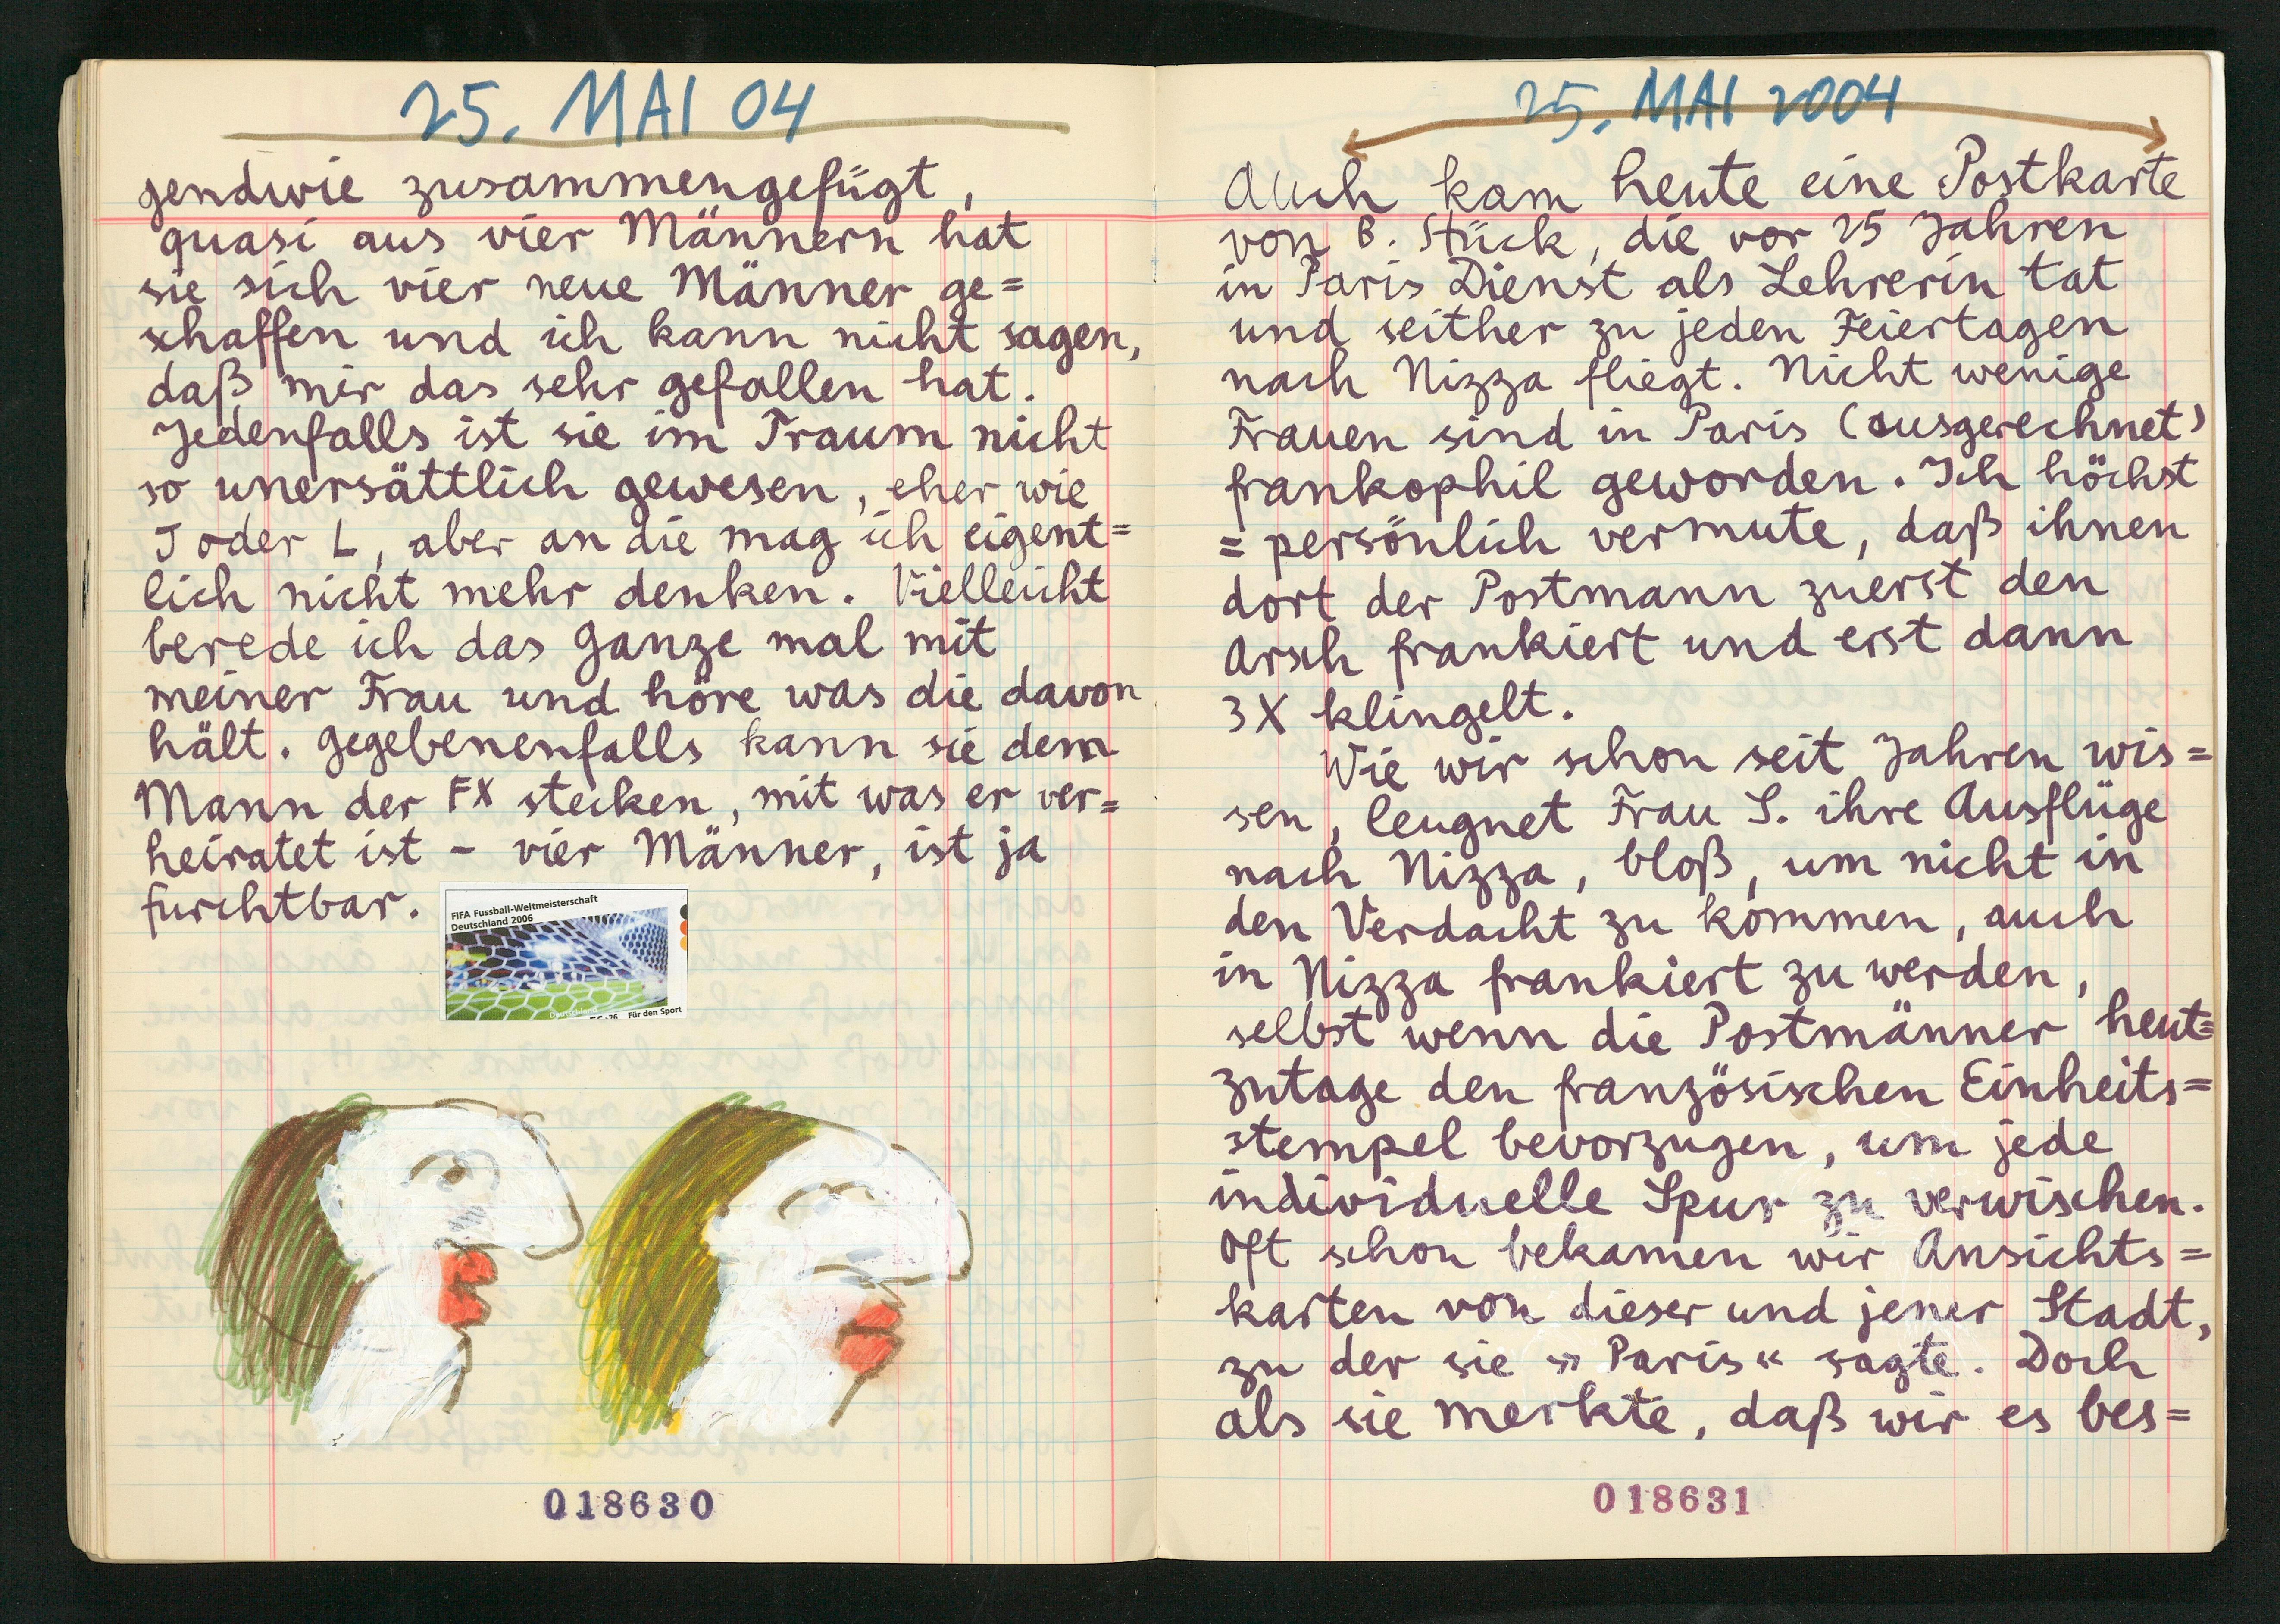 25. MAI 04
gendwie zusammengefügt,
quasi aus vier Männern hat
sie sich vier neue Männer ge=
schaffen und ich kann nicht sagen,
daß mir das sehr gefallen hat.
Jedenfalls ist sie im Traum nicht
so unersättlich gewesen, eher wie
J oder L, aber an die mag ich eigent=
lich nicht mehr denken. Vielleicht
berede ich das Ganze mal mit
meiner Frau und höre was die davon
hält. Gegebenenfalls kann sie dem
Mann der FX stecken, mit was er ver=
heiratet ist – vier Männer, ist ja
furchtbar.
FIFA Fussball-Weltmeisterschaft
Deutschland 2006
Deutschland
Für den Sport
018630
25. MAI 2004
Auch kam heute eine Postkarte
von B. Stück, die vor 25 Jahren
in Paris Dienst als Lehrerin tat
und seither zu jeden Feiertagen
nach Nizza fliegt. Nicht wenige
Frauen sind in Paris (ausgerechnet)
frankophil geworden. Ich höchst
= persönlich vermute, daß ihnen
dort der Postmann zuerst den
Arsch frankiert und erst dann
3X klingelt.
Wie wir schon seit Jahren wis=
sen, leugnet Frau S. ihre Ausflüge
nach Nizza, bloß, um nicht in
den Verdacht zu kommen, auch
in Nizza frankiert zu werden,
selbst wenn die Postmänner heut=
zutage den französischen Einheits=
stempel bevorzugen, um jede
individuelle Spur zu verwischen.
Oft schon bekamen wir Ansichts=
karten von dieser und jener Stadt,
zu der sie »Paris« sagte. Doch
als sie merkte, daß wir es bes=
018631